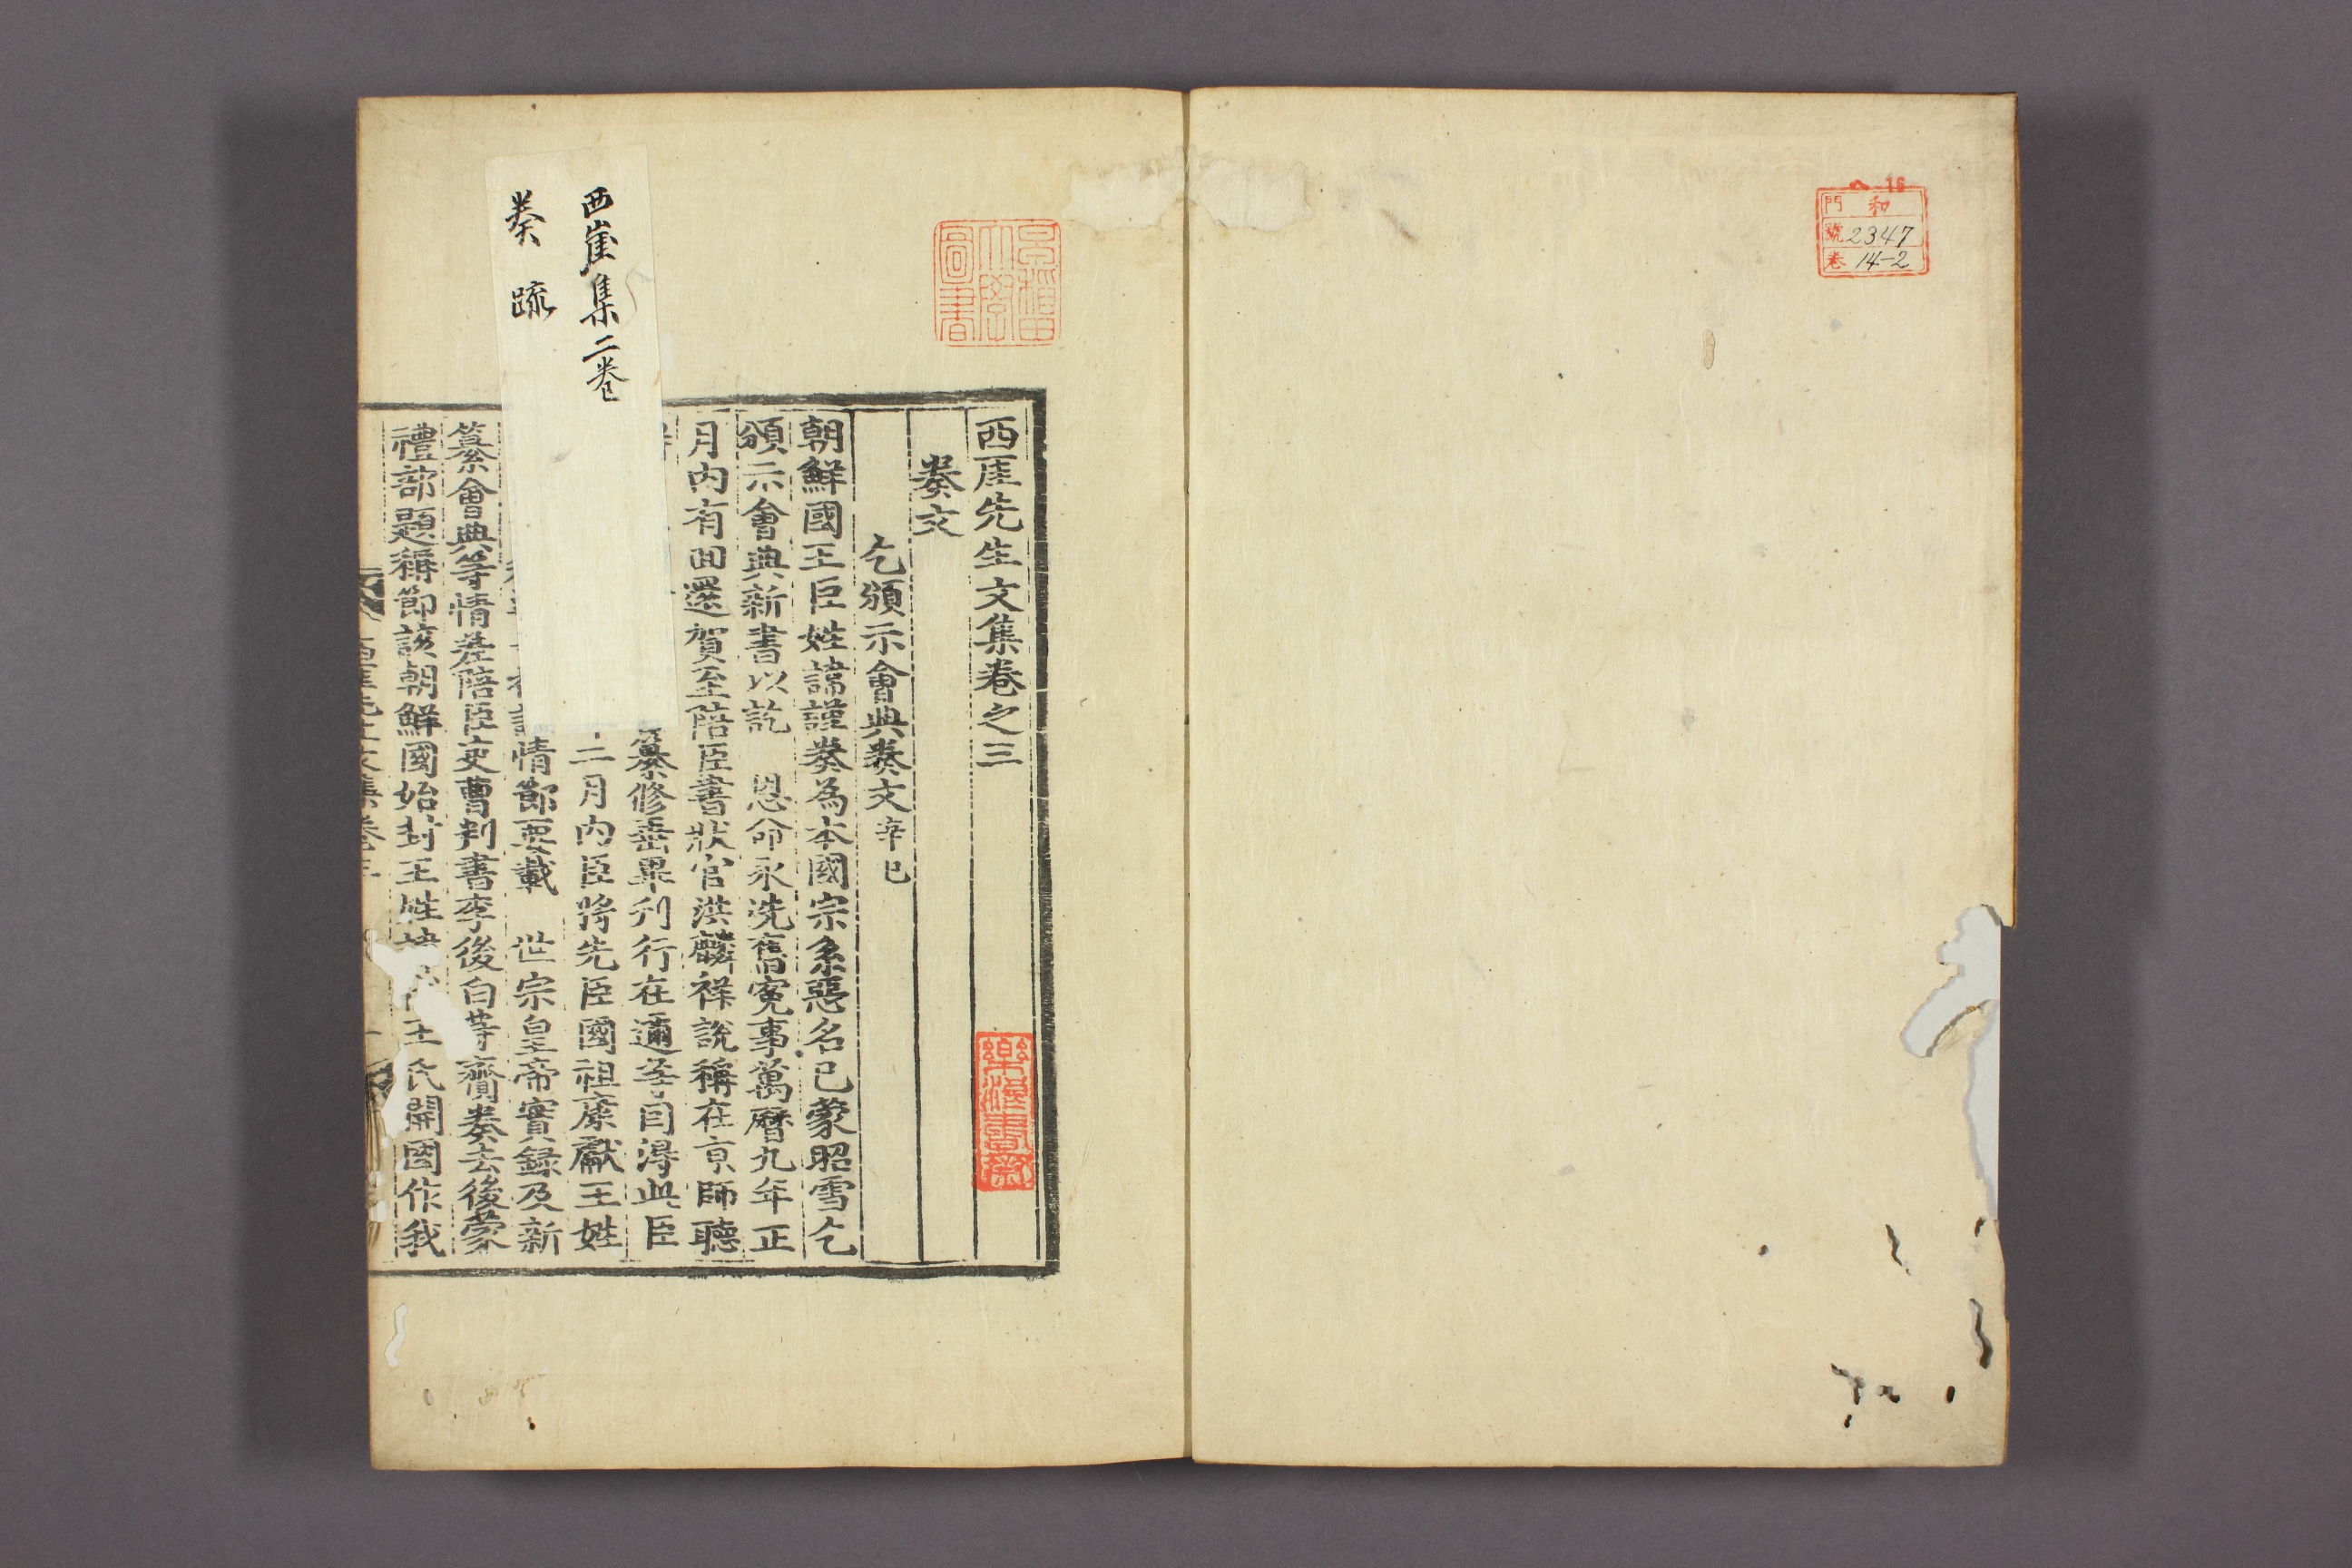 ヘ 16
門 和
號 2347
卷 14-2
早稲田大學圖書
西厓先生文集卷之三
奏文
乞頒示會典奏文 辛巳
朝鮮國王臣姓諱謹奏為本國宗系惡名已蒙昭雪乞
頒示會典新書以訖 恩命永洗舊寃事萬曆九年正
月內有回還賀至陪臣書狀官洪麟祥說稱在京師聽
纂修垂畢刊行在邇等因得此臣
二月內臣將先臣國祖康獻王姓
情節要載 世宗皇帝實錄及新
纂會典等情差陪臣吏曹判書李後白等齎奏去後蒙
禮部題稱節該朝鮮國始封王姓 王氏開國作我
西崖集二卷
奏 疏